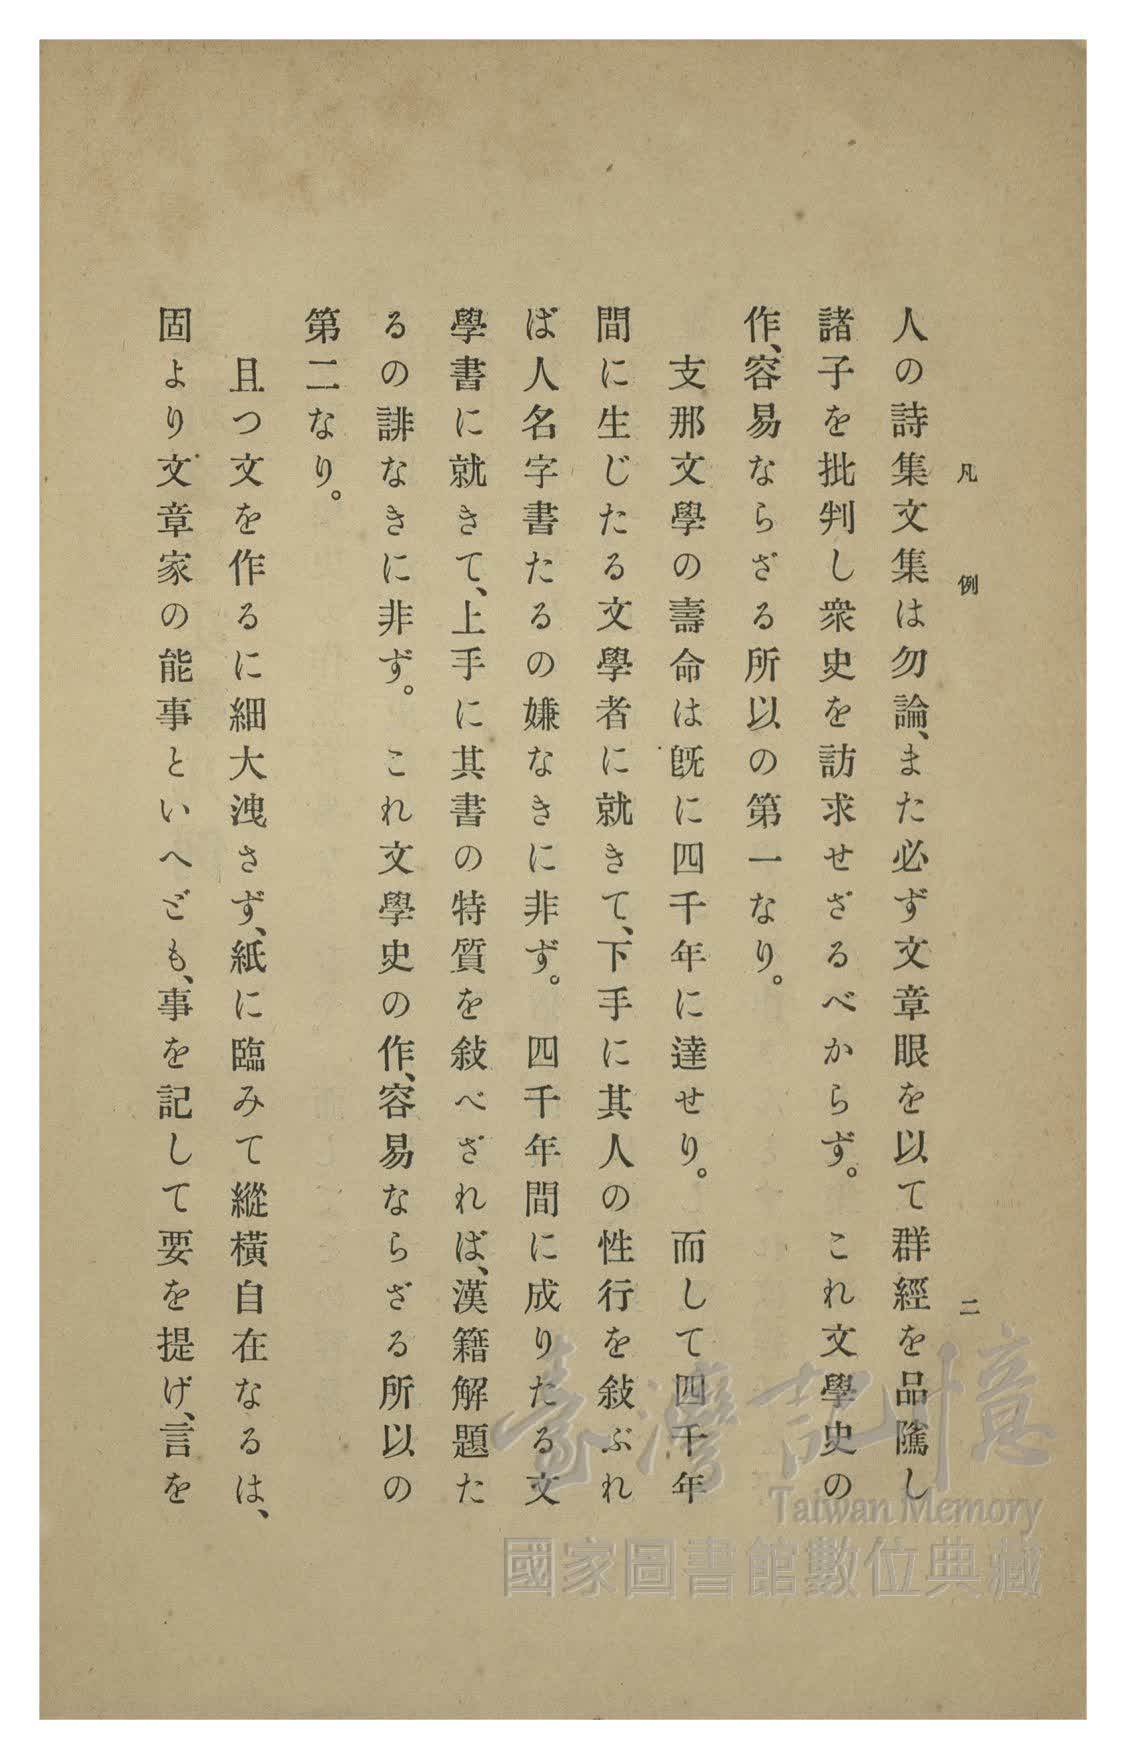 凡例　二
人の詩集文集は勿論、また必ず文章眼を以て群經を品隲し
諸子を批判し衆史を訪求せざるべからず。これ文學史の
作、容易ならざる所以の第一なり。
支那文學の壽命は既に四千年に達せり。而して四千年
間に生じたる文學者に就きて、下手に其人の性行を敍ぶれ
ば人名字書たるの嫌なきに非ず。四千年間に成りたる文
學書に就きて、上手に其書の特質を敍べざれば、漢籍解題た
るの誹なきに非ず。これ文學史の作、容易ならざる所以の
第二なり。
且つ文を作るに細大洩さず、紙に臨みて縱橫自在なるは、
固より文章家の能事といへども、事を記して要を提げ、言を
臺灣記憶
Taiwan Memory
國家圖書館數位典藏